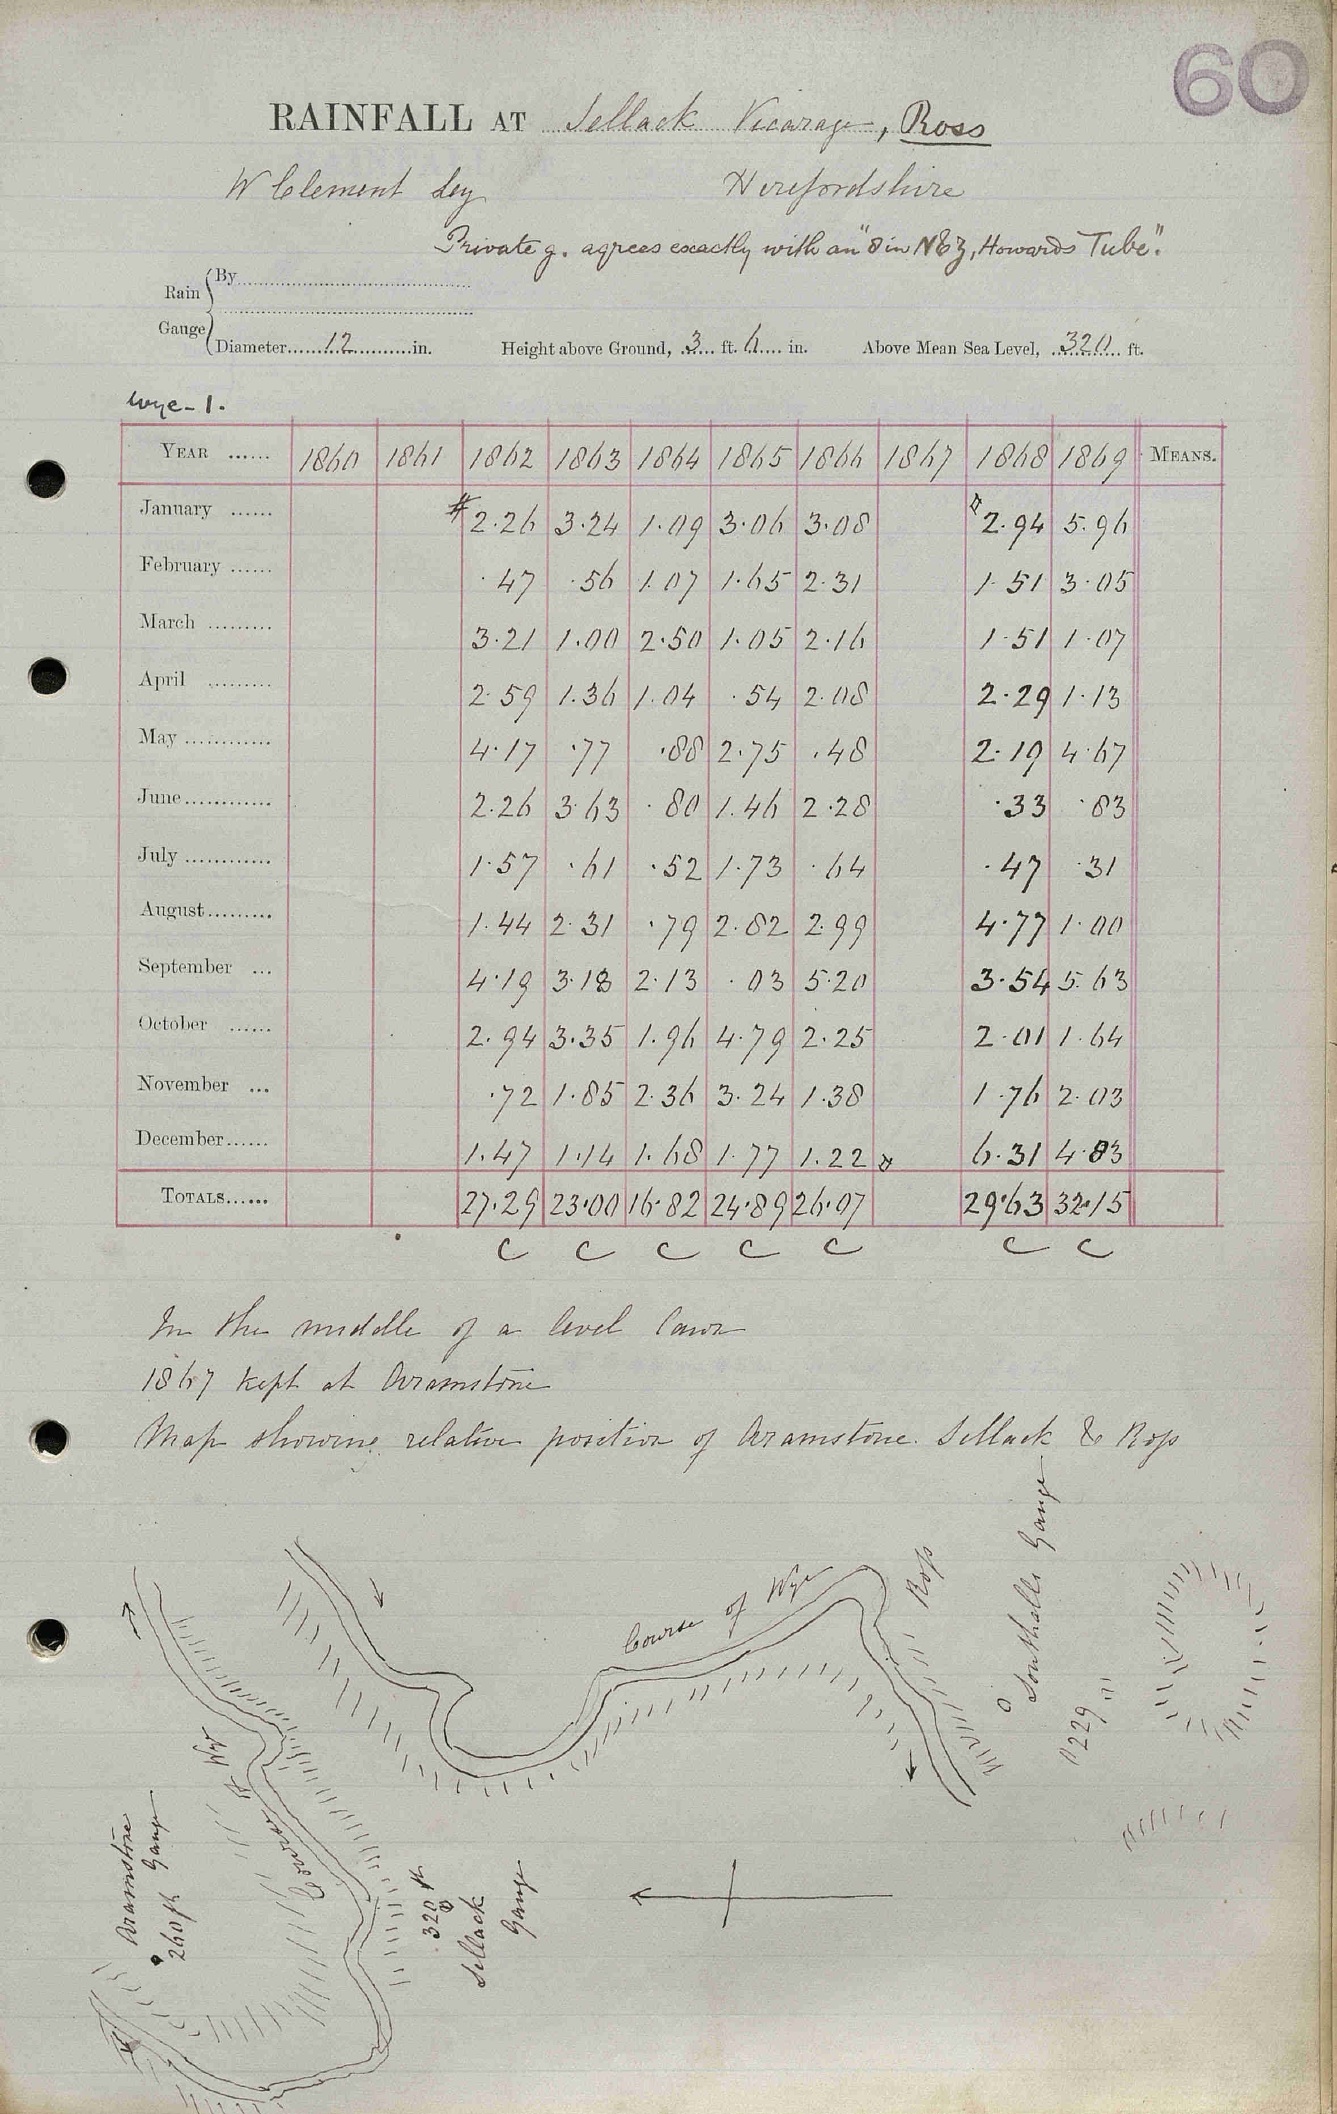 60
RAINFALL AT Sellack Vicarage, Ross
W Clement Ley Herefordshire
Private g. agrees exactly with an "8 in NEZ, Howards Tube".
Rain Gauge { By
Diameter 12 in. Height above Ground, 3 ft. 6 in. Above Mean Sea Level, 320 ft.
Wye - 1.
YEAR ...... 1860 1861 1862 1863 1864 1865 1866 1867 1868 1869 MEANS.
January ...... # 2.26 3.24 1.09 3.06 3.08 2.94 5.96
February ...... .47 .56 1.07 1.65 2.31 1.51 3.05
March ......... 3.21 1.00 2.50 1.05 2.16 1.51 1.07
April ......... 2.59 1.36 1.04 .54 2.08 2.29 1.13
May ............ 4.17 .77 .88 2.75 .48 2.19 4.67
June ............ 2.26 3.63 .80 1.46 2.28 .33 .83
July ............ 1.57 .61 .52 1.73 .64 .47 .31
August ......... 1.44 2.31 .79 2.82 2.99 4.77 1.00
September ... 4.19 3.18 2.13 .03 5.20 3.54 5.63
October ...... 2.94 3.35 1.96 4.79 2.25 2.01 1.64
November ... .72 1.85 2.36 3.24 1.38 1.76 2.03
December ...... 1.47 1.14 1.68 1.77 1.22 6.31 4.83
TOTALS ...... 27.29 23.00 16.82 24.89 26.07 29.63 32.15
C C C C C C C
In the middle of a level lawn
1867 kept at Aramstone
Map showing relative position of Aramstone Sellack & Ross
Course of Wye
Ross
Southalls Gauge
"229"
Course of Wye
Aramstone Gauge
260 ft
320 ft
Sellack Gauge